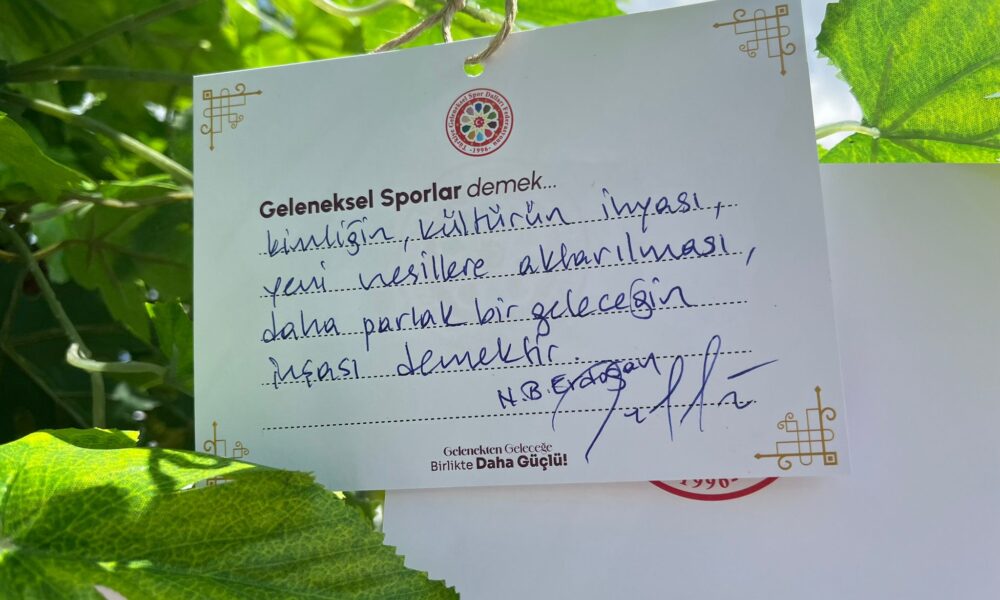 Türkiye Geleneksel Spor Dalları Federasyonu
-1996-
Geleneksel Sporlar demek...
kimliğin, kültürün ihyası,
yeni nesillere aktarılması,
daha parlak bir geleceğin
inşası demektir.
N.B. Erdoğan
Gelenekten Geleceğe
Birlikte Daha Güçlü!
1996-